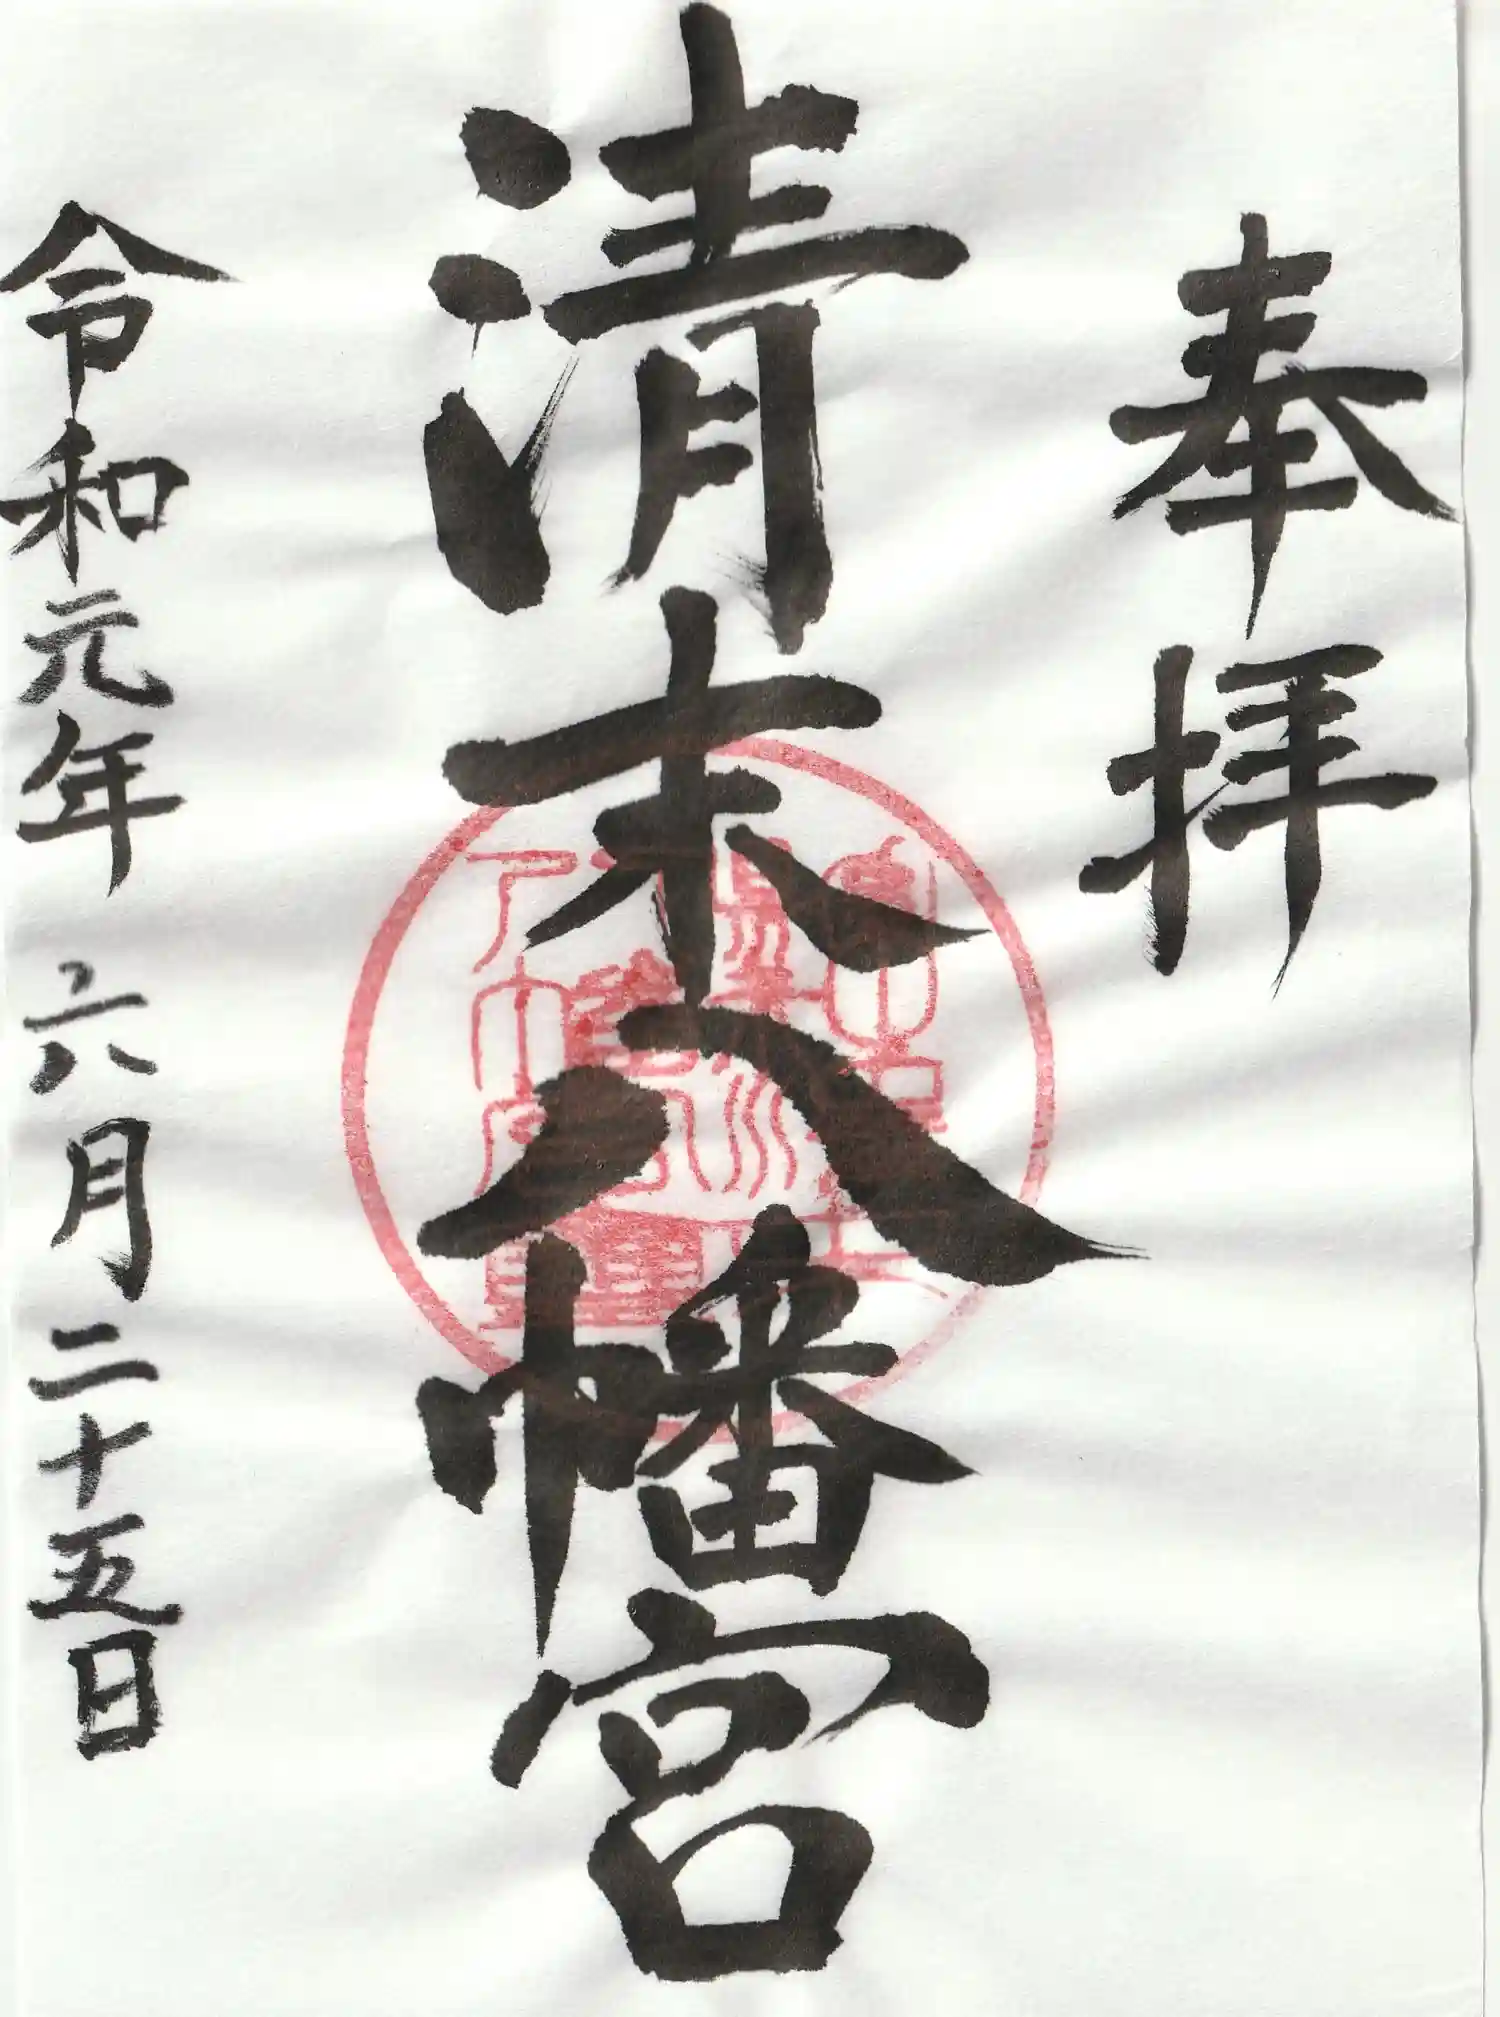 奉拝
清末八幡宮
令和元年六月二十五日